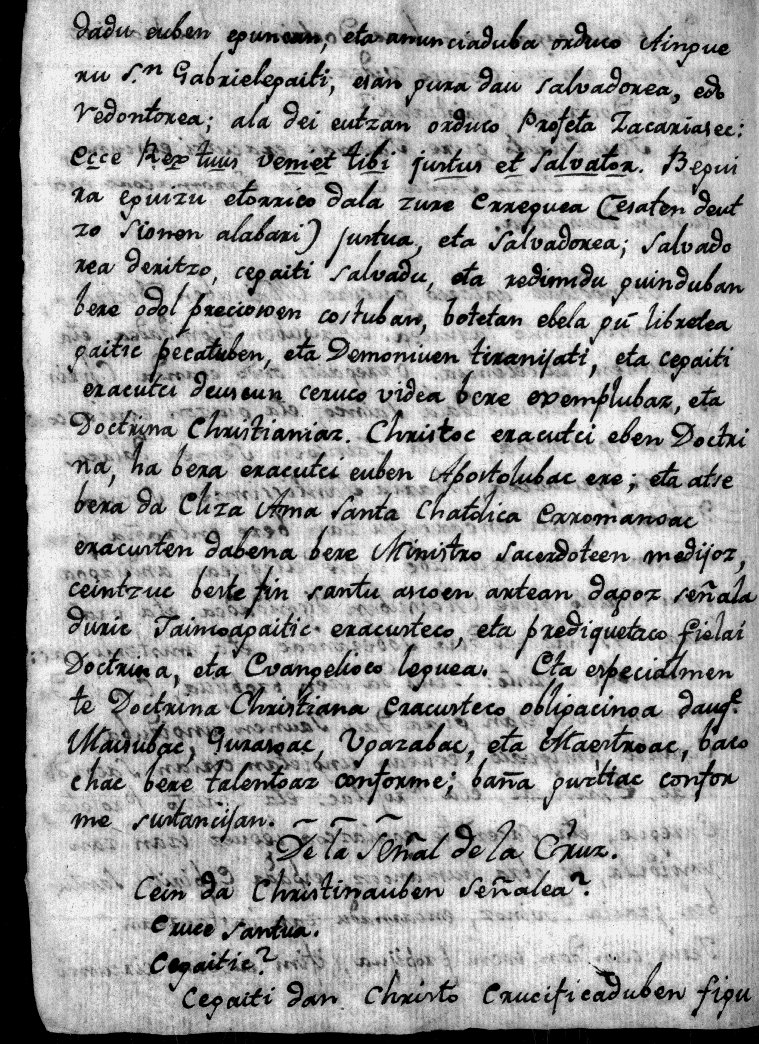 dadu euben epunean, eta anunciaduba orduco Ainpue
ru S.n Gabrielepaiti, esan pura dau salvadorea, edo
Redontorea; ala dei eutzan orduco Profeta Zacariasec:
Ecce Rex tuus vemet tibi justus et salvator. Bepui
ra epuizu etorrico dala zure Erreguea (esaten deut
zo Sionen alabari) justua, eta Salvadorea; salvado
rea deritzo, cepaiti salvadu, eta redimidu puinduban
bere odol preciosoen costuban, botetan ebela pū librelea
paitic pecatuben, eta Demoniuen tiranijati, eta cepaiti
eracutci deuscun ceruco videa bere exemplubaz, eta
Doctrina Christianiaz. Christoc eracutci eben Doctri
na, ha bera eracutci euben Apostolubac ere; eta atse
bera da Eliza Ama Santa Chatolica Erromanoac
eracusten dabena bere Ministro sacerdoteen medijoz,
ceintzuc beste fin santu ascoen artean dapoz señala
duric Jaincoapaitic eracusteco, eta prediquetaco fielai
Doctrina, eta Evangelioco leguea. Eta especialmen
te Doctrina Christiana eracusteco oblipacinoa dauqe
Maisubac, Gurasoac, Upazabac, eta Maestroac, baco
chac bere talentoaz conforme; baña puztiac confor
me sustancijan.
De la Señal de la Cruz.
Cein da Christinauben señalea?
Cruce santua.
Cepaitic?
Cepaiti dan Christo Crucificaduben fipu